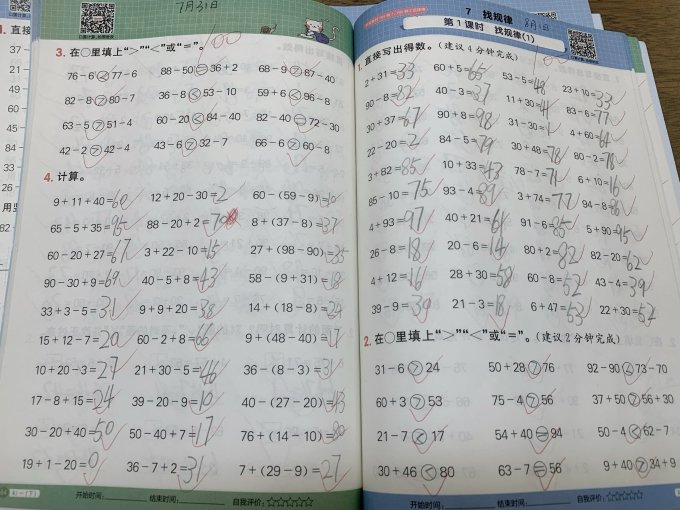 7月31日
3. 在○里填上“>”“<”或“=”。 100
76-6<77-6 88-50=36+2 68-9>87-40
82-8>80-7 36-8<53-10 59+6<96-8
63-5>51-4 60-20<84-40 82-40=72-30
42-2>42-4 43-6>32-7 66-6>60-8
4. 计算。
9+11+40=60 12+20-30=2 60-(59-9)=10
65-5+35=95 88-20+2=70 8+(37-8)=37
60-20+27=67 3+22-10=15 27+(98-90)=35
90-30+9=69 40-5+8=43 58-(9+31)=18
33+3-5=31 9+9+20=38 14+(18-8)=24
15+12-7=20 60-2+8=66 9+(48-40)=17
10+20-3=27 21+30-5=46 36-(8-3)=31
17-8+15=24 39-20-9=10 40-(27-20)=43
30-20+40=50 50-40+7=17 76+(14-10)=80
19+1-20=0 36-7+2=31 7+(29-9)=27
开始时间: 结束时间: 自我评价:☆☆☆☆☆
7 找规律
第1课时 找规律(1) 8月1日
1. 直接写出得数。(建议4分钟完成)
2+31=33 60+5=65 53-5=48 23+10=33
90-8=82 40-3=37 11+30=41 83-6=77
30+37=67 90+8=98 31-30=1 4+60=64
22-20=2 84-5=79 30+48=78 80-2=78
3+82=85 10+33=43 78-7=71 6+10=16
85-10=75 93-4=89 3+74=77 94-8=86
4+93=97 40+21=61 91-6=85 5+90=95
26-8=18 20-6=14 80+2=82 82-20=62
4+12=16 28+30=58 60-8=52 43-4=39
39-9=30 21-3=18 6+47=53 22+30=52
2. 在○里填上“>”“<”或“=”。(建议2分钟完成)
31-6>24 50+28>76 92-90<73-70
60+3>53 75-4>56 37+50>56+30
21-7<17 54+40=94 50-4<62-7
30+46<80 63-7=56 9+40>34+9
开始时间: 结束时间: 自我评价:☆☆☆☆☆